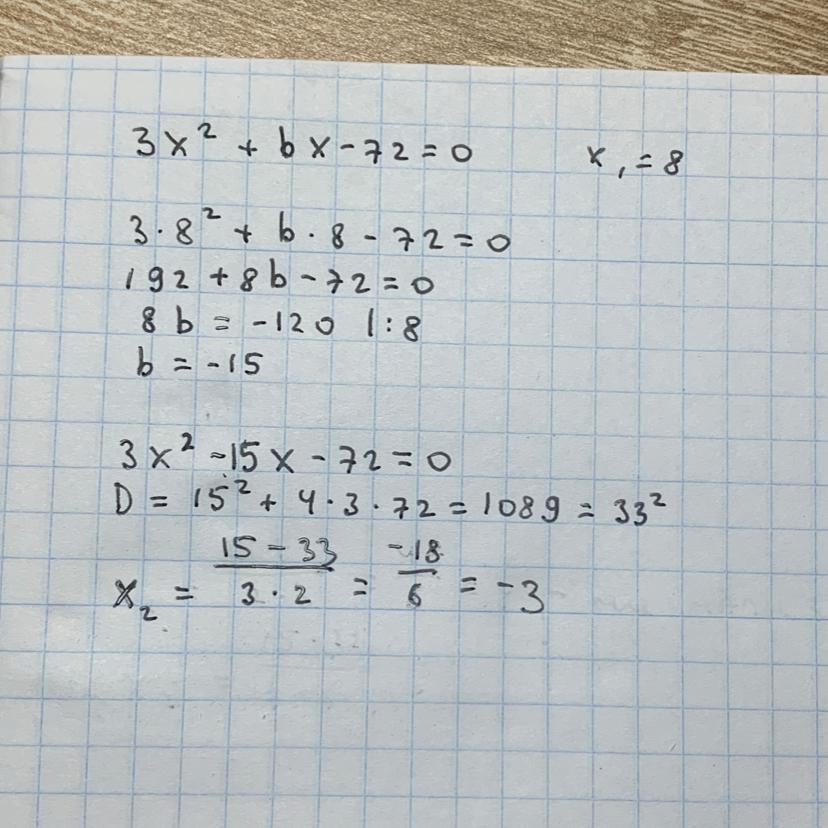 3x² + bx - 72 = 0 x₁ = 8
3 · 8² + b · 8 - 72 = 0
192 + 8b - 72 = 0
8b = -120 |:8
b = -15
3x² - 15x - 72 = 0
D = 15² + 4 · 3 · 72 = 1089 = 33²
x₂ = (15 - 33)/(3 · 2) = -18/6 = -3